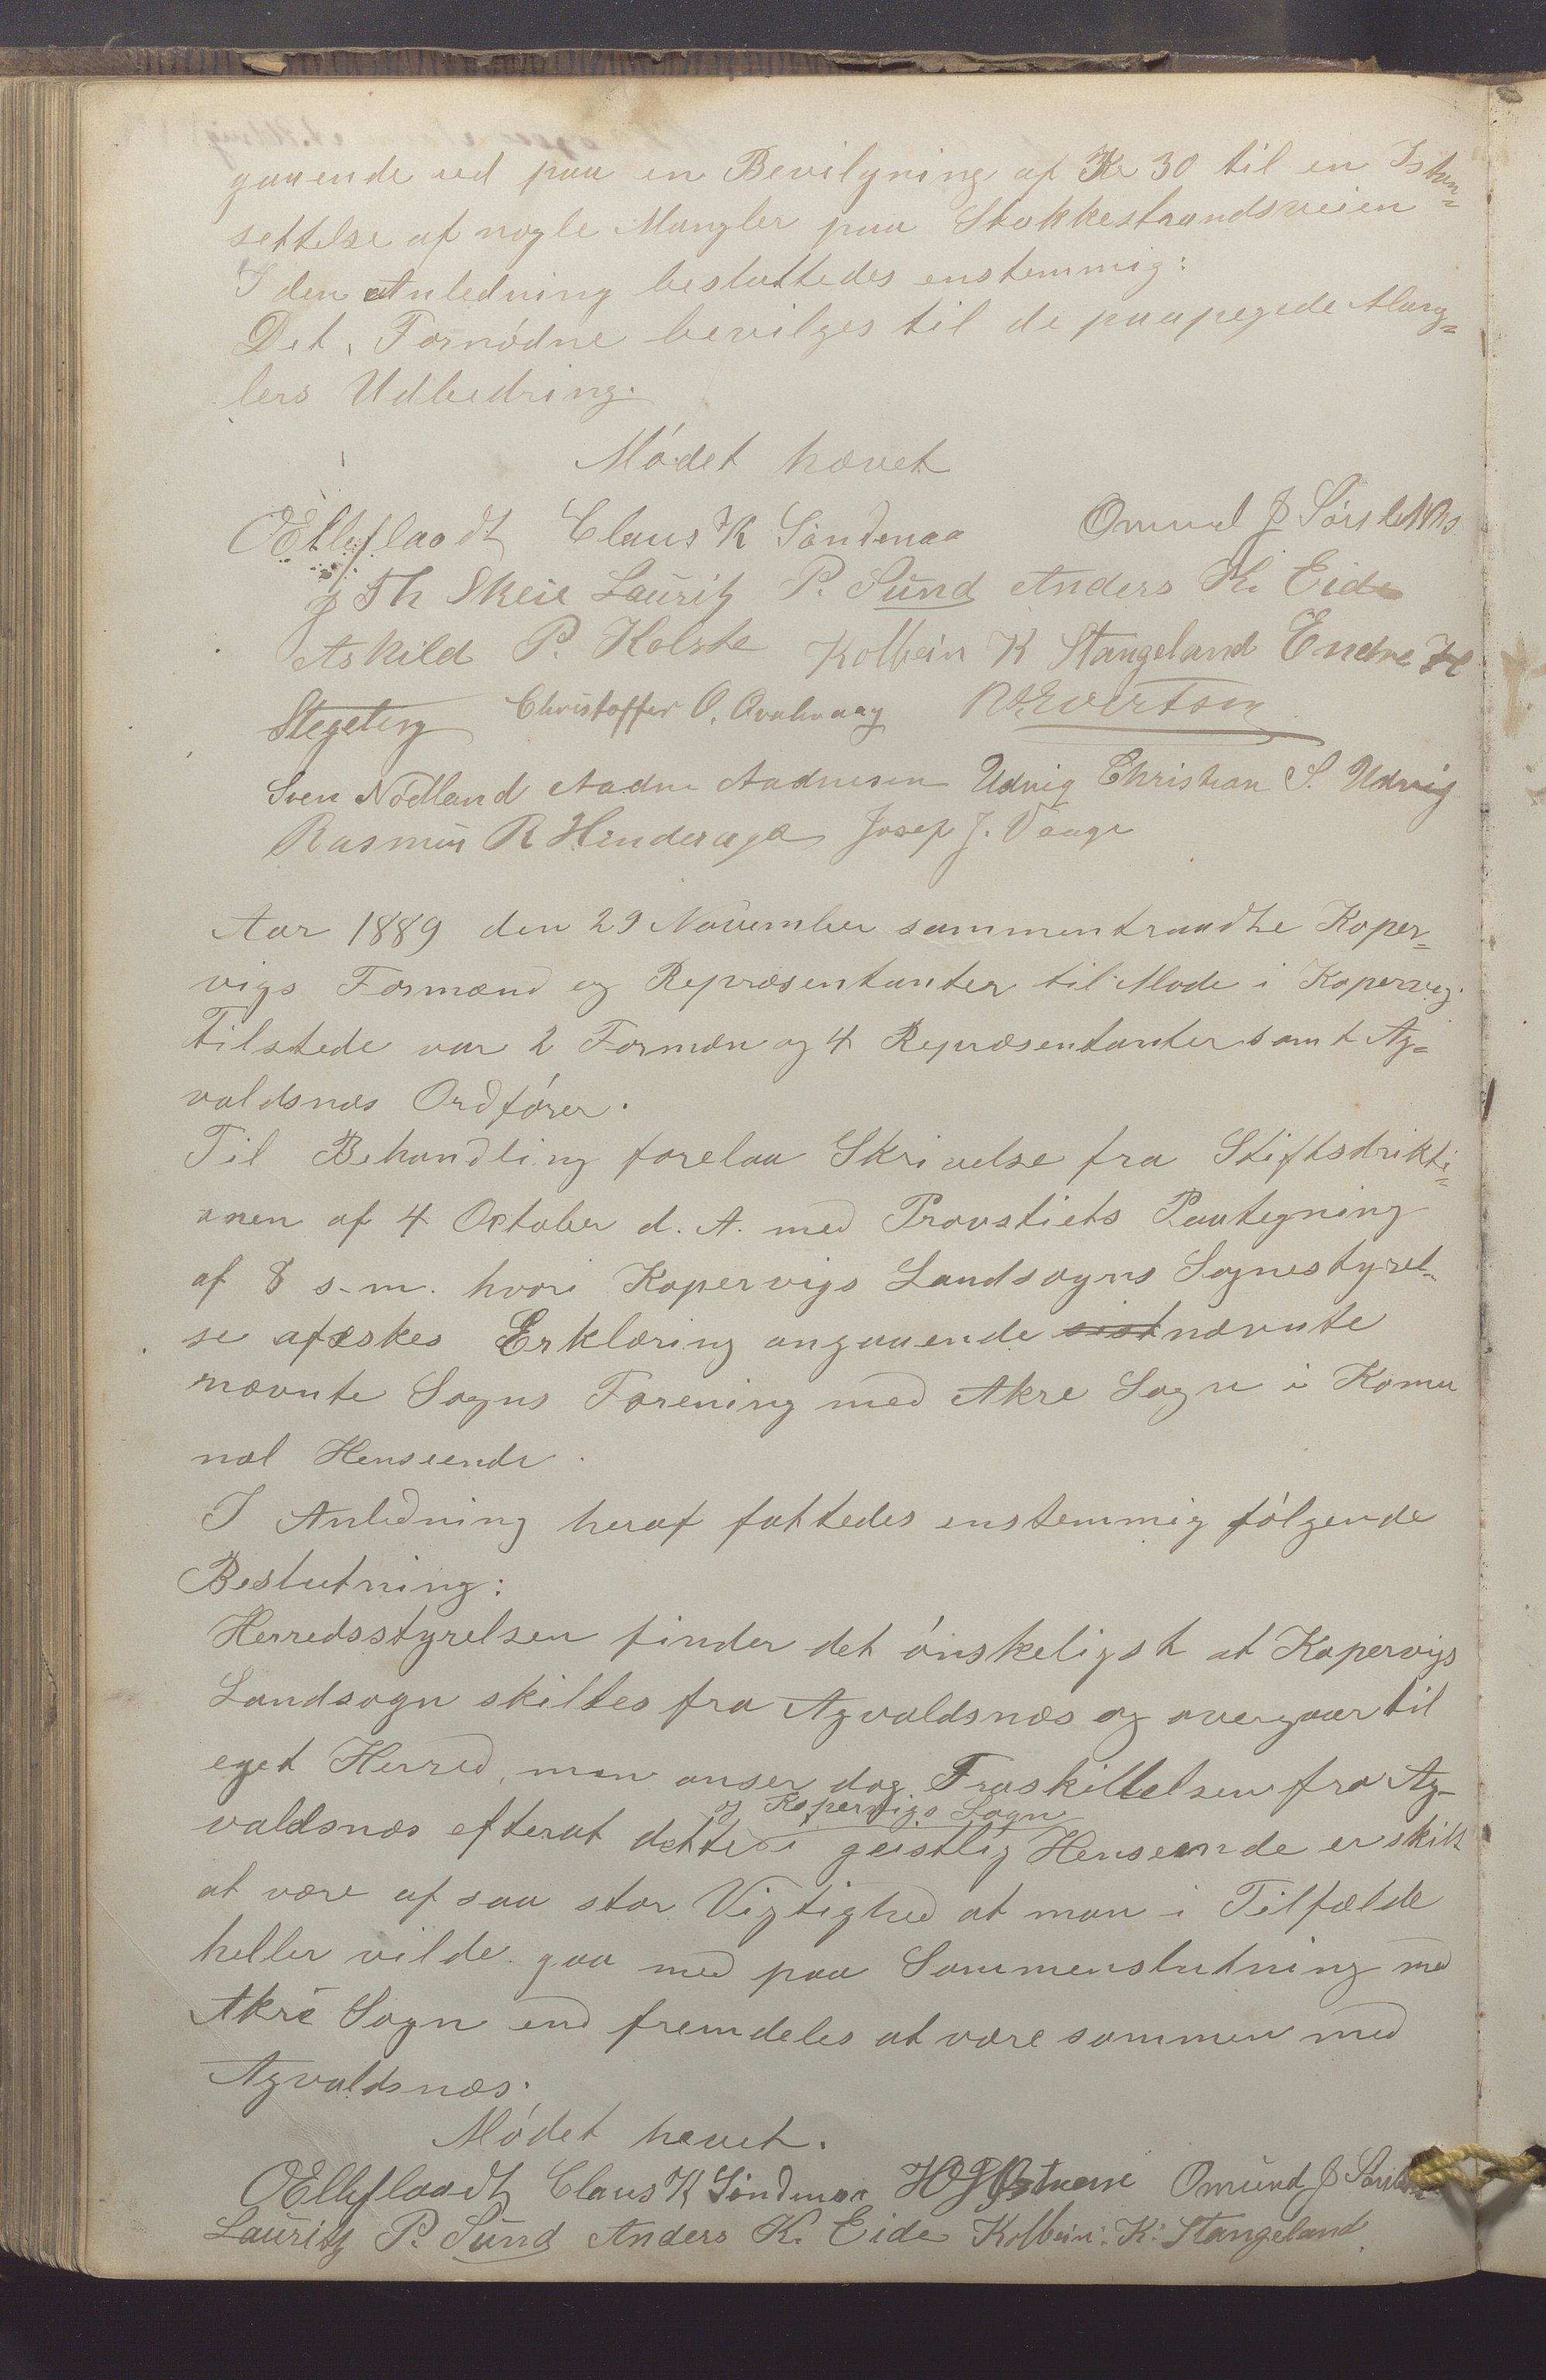 gaaende ud paa en Bevilgning af Kr 30 til en Istan=
settelse af nogle Mangler paa Stokkestrandsveien
I den Anledning besluttedes enstemmig:
Det Fornødne bevilges til de paapegede Mang=
lers Udbedring.
Mødet hævet
OElleflaadt Claus K Søndenaa Omund J
J Th Skeie Lauritz P. Sund Anders K. Eide
Askild P. Holste Kolbein K Stangeland Endre H
Stegeberg Christoffer O. Qvalevaag Evertsen
Sven Nødland Aadne Aadnesen Udvig Christian S. Udvig
Rasmus R Hinderager Josef J. Vaage
Aar 1889 den 29 November sammentraadte Koper=
vigs Formænd og Repræsentanter til Møde i Kopervig.
Tilstede var 2 Formæn og 4 Repræsentanter samt Ag=
valdsnæs Ordfører.
Til Behandling forelaa Skrivelse fra Stiftsdrikti=
onen af 4 October d. A. med Provstiets Paategning
af 8 s.m. hvori Kopervigs Landsogns Sognestyrel=
se afæskes Erklæring angaaende sist nævnte
nævnte Sogns Forening med Akre Sogn i Komu
nal Henseende.
I Anledning heraf fattedes enstemmig følgende
Beslutning:
Herredsstyrelsen finder det ønskeligst at Kopervigs
Landsogn skiltes fra Agvaldsnæs og overgaar til
eget Herred, man anser dog Fraskillelsen fra Ag-
og Kopervigs Sogn
valdsnæs efterat dette i geistlig Henseende er skilt
at være af saa stor Vigtighed at man i Tilfælde
heller vilde gaa med paa Sammenslutning med
Akre Sogn end fremdeles at være sammen med
Agvaldsnæs.
Mødet hævet.
OElleflaadt Claus K Søndenaa Omund J
Lauritz P. Sund Anders K. Eide Kolbein K. Stangeland